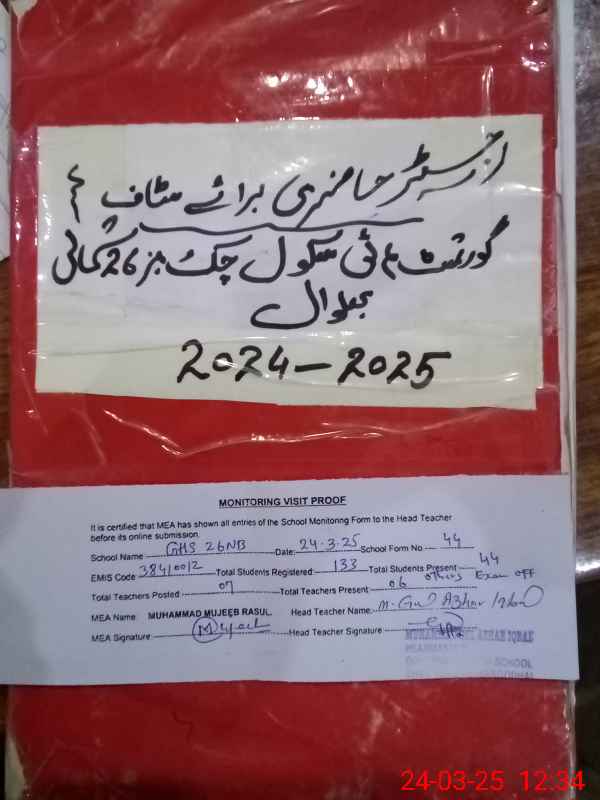 رجسٹر حاضری برائے سٹاف
گورنمنٹ ہائی سکول چک نمبر 26 شمالی
بھلوال
2024-2025
MONITORING VISIT PROOF
It is certified that MEA has shown all entries of the School Monitoring Form to the Head Teacher
before its online submission.
School Name GHS 26NB Date: 24.3.25 School Form No 44
EMIS Code 38410012 Total Students Registered 133 Total Students Present 44
Total Teachers Posted 07 Total Teachers Present 06 others Exam off
MEA Name: MUHAMMAD MUJEEB RASUL. Head Teacher Name: M. Gul Azhar Iqbal
MEA Signature Mujeeb Head Teacher Signature
AZHAR IQBAL
SCHOOL
24-03-25 12:34